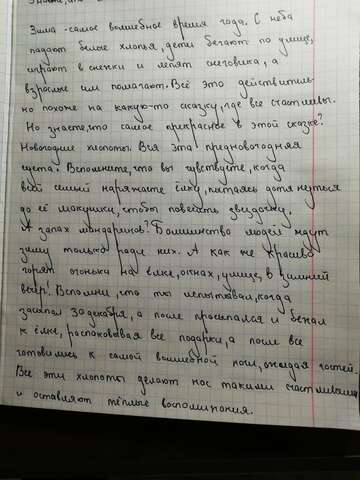 Зима - самое волшебное время года. С неба
падают белые хлопья, дети бегают по улице,
играют в снежки и лепят снеговика, а
взрослые им помагают. Всё это действитель-
но похоже на какую-то сказку, где все счастливы.
Но знаете, что самое прекрасное в этой сказке?
Новогодние хлопоты. Вся эта предновогодняя
суета. Вспомните, что вы чувствуете, когда
всей семьёй наряжаете ёлку, пытаясь дотянуться
до её макушки, чтобы повесить звёздочку.
А запах мандаринов? Большинство людей ждут
зиму только ради них. А как же красиво
горят огоньки на ёлке, окнах, улице, в зимний
вечер! Вспомни, что ты испытывал, когда
засыпал 30 декабря, а после просыпался и бежал
к ёлке, распаковывая все подарки, а после все
готовились к самой волшебной ночи, ожидая гостей.
Все эти хлопоты делают нас такими счастливыми
и оставляют тёплые воспоминания.